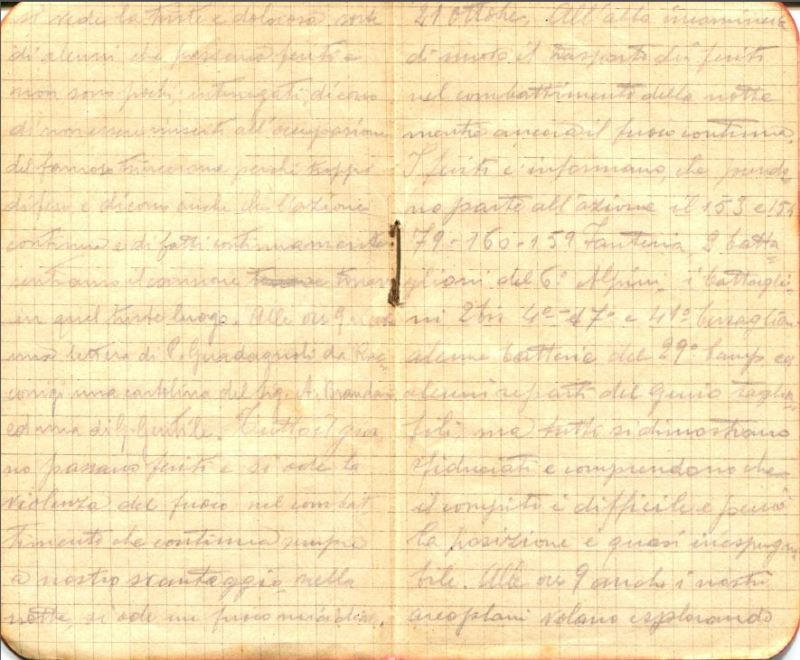 si vede la triste e dolorosa sorte
di alcuni che passano feriti e
non sono pochi, interrogati, dicono
di non essere riusciti all'occupazione
del famoso trincerone perché troppo
difeso e dicono anche che l'azione
continua e di fatti continuamente
sentiamo il cannone tonare
in quel triste luogo. Alle ore 9
una lettera di P. Guadagnoli da Rac=
conigi una cartolina del Sig. A. Brandan
ed una di G. Gentile. Tutto il gior
no passano feriti e si ode la
violenza del fuoco nel combat
timento che continua sempre
a nostro svantaggio, nella
notte, si ode un fuoco micidia.
21 ottobre. All'alba incomincia
di nuovo il trasporto dei feriti
nel combattimento della notte
mentre ancora il fuoco continua.
I feriti c'informano, che prendo=
no parte all'azione il 153 e 154
79-160-159 Fanteria, 2 batta
glioni del 6° Alpini, i battaglio
ni 2bis 4° 17° e 41° bersaglieri
alcune batterie del 29° Camp. ed
alcuni reparti del genio
ma tutti si dimostrano
sfiduciati e comprendono che
il compito è difficile e perciò
la posizione è quasi inespugna
bile. Alle ore 9 anche i nostri
areoplani volano esplorando